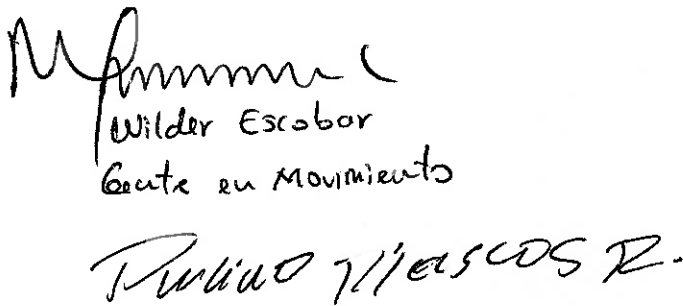 Wilder Escobar
Gente en Movimiento
Riascos R.